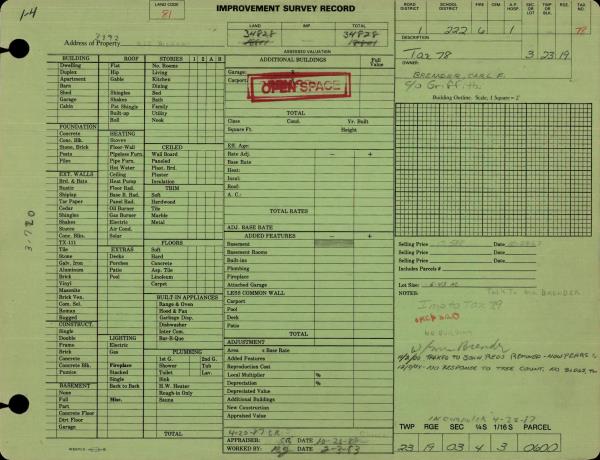 1-4
IMPROVEMENT SURVEY RECORD
LAND CODE
81
LAND
IMP.
TOTAL
34828
34828
ASSESSED VALUATION
ROAD DISTRICT
SCHOOL DISTRICT
FIRE
CEM.
A.P. HOSP.
SEC. OR LOT
TWP. OR BLK.
RGE.
TAX NO.
1
222
6
1
3
23
19
78
DESCRIPTION
Tax 78
OWNER:
BRENDER, CARL F.
c/o Griffith
Address of Property
BUILDING
ROOF
STORIES
1 2 A B
Dwelling
Duplex
Apartment
Barn
Shed
Garage
Cabin
Flat
Hip
Gable
Bars
Shingles
Shakes
Pat. Shingle
Built-up
Roll
No. Rooms
Living
Kitchen
Dining
Bed
Bath
Family
Utility
Nook
FOUNDATION
Concrete
Conc. Blk.
Stone, Brick
Posts
Piles
HEATING
Stoves
Floor-Wall
Pipeless Furn.
Pipe Furn.
Hot Water
Ceiling
Heat Pump
Floor Rad.
Base B. Rad.
Panel Rad.
Oil Burner
Gas Burner
Electric
Air Cond.
Solar
CEILED
Wall Board
Paneled
Plast. Brd.
Plaster
Insulation
TRIM
Soft
Hardwood
Tile
Marble
Metal
EXT. WALLS
Brd. & Bats
Rustic
Shiplap
Tar Paper
Cedar
Shingles
Shakes
Stucco
Conc. Blks.
TX-111
Tile
Stone
Galv. Iron
Aluminum
Brick
Vinyl
Masonite
Brick Ven.
Com. Sel.
Roman
Rugged
EXTRAS
Decks
Porches
Patio
Pool
FLOORS
Soft
Hard
Concrete
Asp. Tile
Linoleum
Carpet
BUILT IN APPLIANCES
Range & Oven
Hood & Fan
Garbage Disp.
Dishwasher
Inter Com.
Bar-B-Que
CONSTRUCT.
Single
Double
Frame
Brick
Concrete
Concrete Blk.
Pumice
Single
LIGHTING
Electric
Gas
Fireplace
Stacked
Single
Back to Back
Misc.
PLUMBING
1st G.
2nd G.
Shower
Tub
Toilet
Lav.
Sink
H.W. Heater
Rough-in Only
Sauna
BASEMENT
None
Full
Part.
Concrete Floor
Dirt Floor
Garage
TOTAL
3-720
ADDITIONAL BUILDINGS
Full Value
Garage:
Carport:
OPEN SPACE
TOTAL
Class
Cond.
Yr. Built
Square Ft.
Height
Eff. Age:
Rate Adj.
- +
Base Rate
Heat:
Insul:
Roof:
A. C.:
TOTAL RATES
ADJ. BASE RATE
ADDED FEATURES
- +
Basement
Basement Rooms
Built-ins
Plumbing
Fireplace
Attached Garage
LESS COMMON WALL
Carport
Pool
Deck
Patio
TOTAL
ADJUSTMENT
Area
x Base Rate
Added Features
Reproduction Cost
Local Multiplier %
Depreciation %
Depreciated Value
Additional Buildings
New Construction
Appraised Value
4-20-87 CR
APPRAISER: CR DATE
WORKED BY: DATE 2-3-83
Building Outline. Scale, 1 Square = 2'
Selling Price
Date
Selling Price
Date
Includes Parcels #
Lot Size:
NOTES:
Imp to Tax 79
NO BUILDING
NO RESPONSE TO TREE COUNT, NO BLDGS,
4-20-87
TWP
RGE
SEC
¼S
1/16 S
PARCEL
23
19
03
4
3
0600